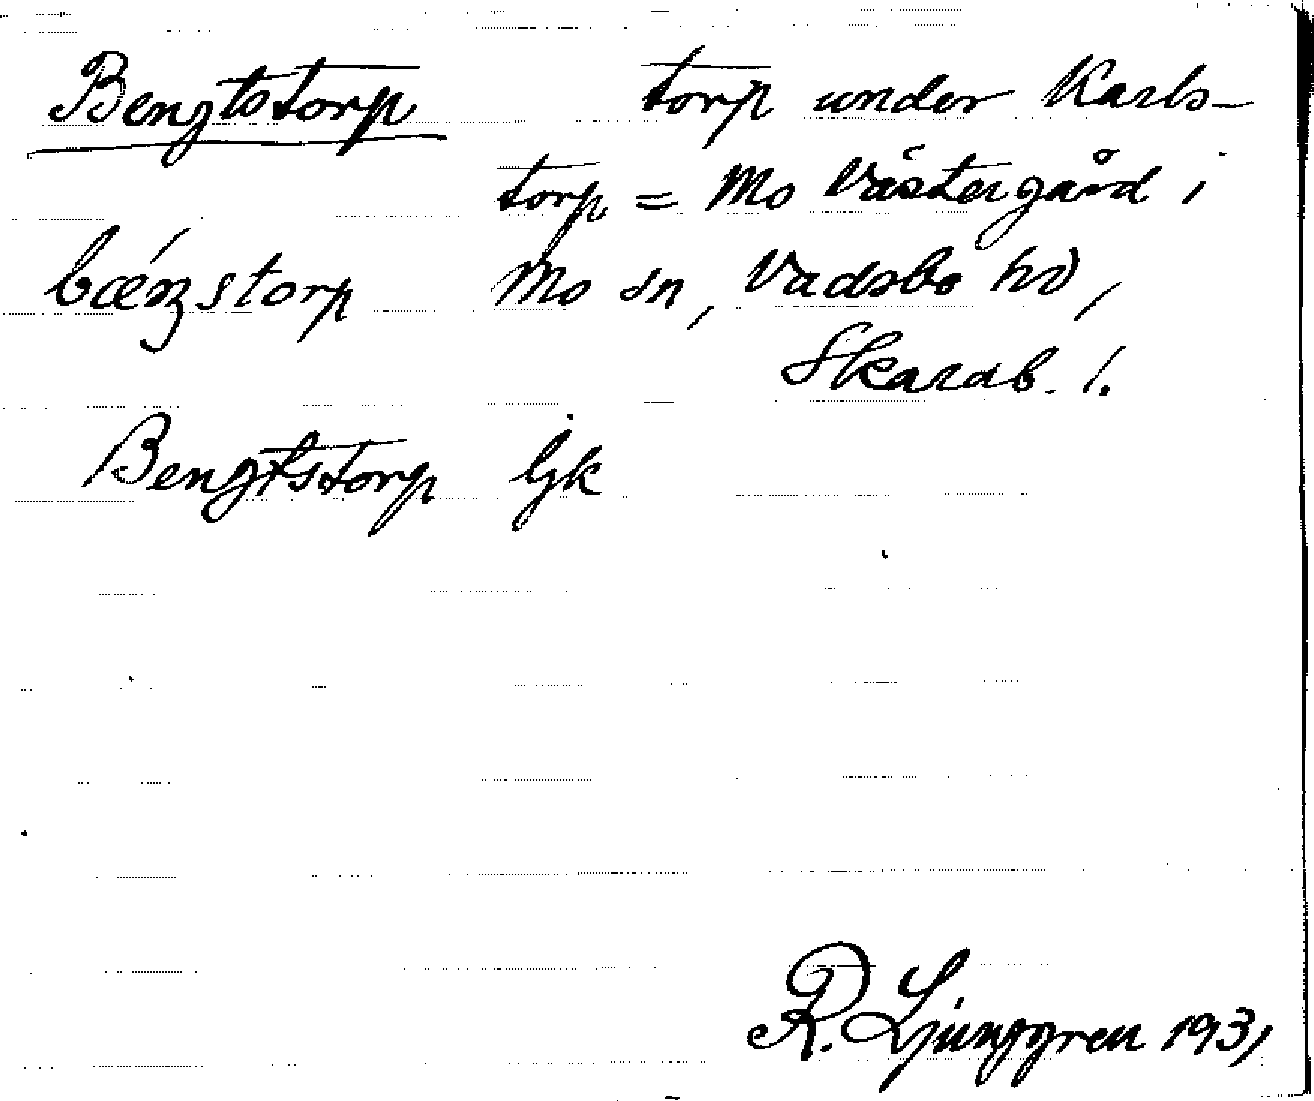 Bengtstorp torp under Karls-
torp = Mo Västergård i
bæŋstorp Mo sn, Vadsbo hd,
Skarab. l.
Bengtstorp ljk
R. Ljunggren 1931